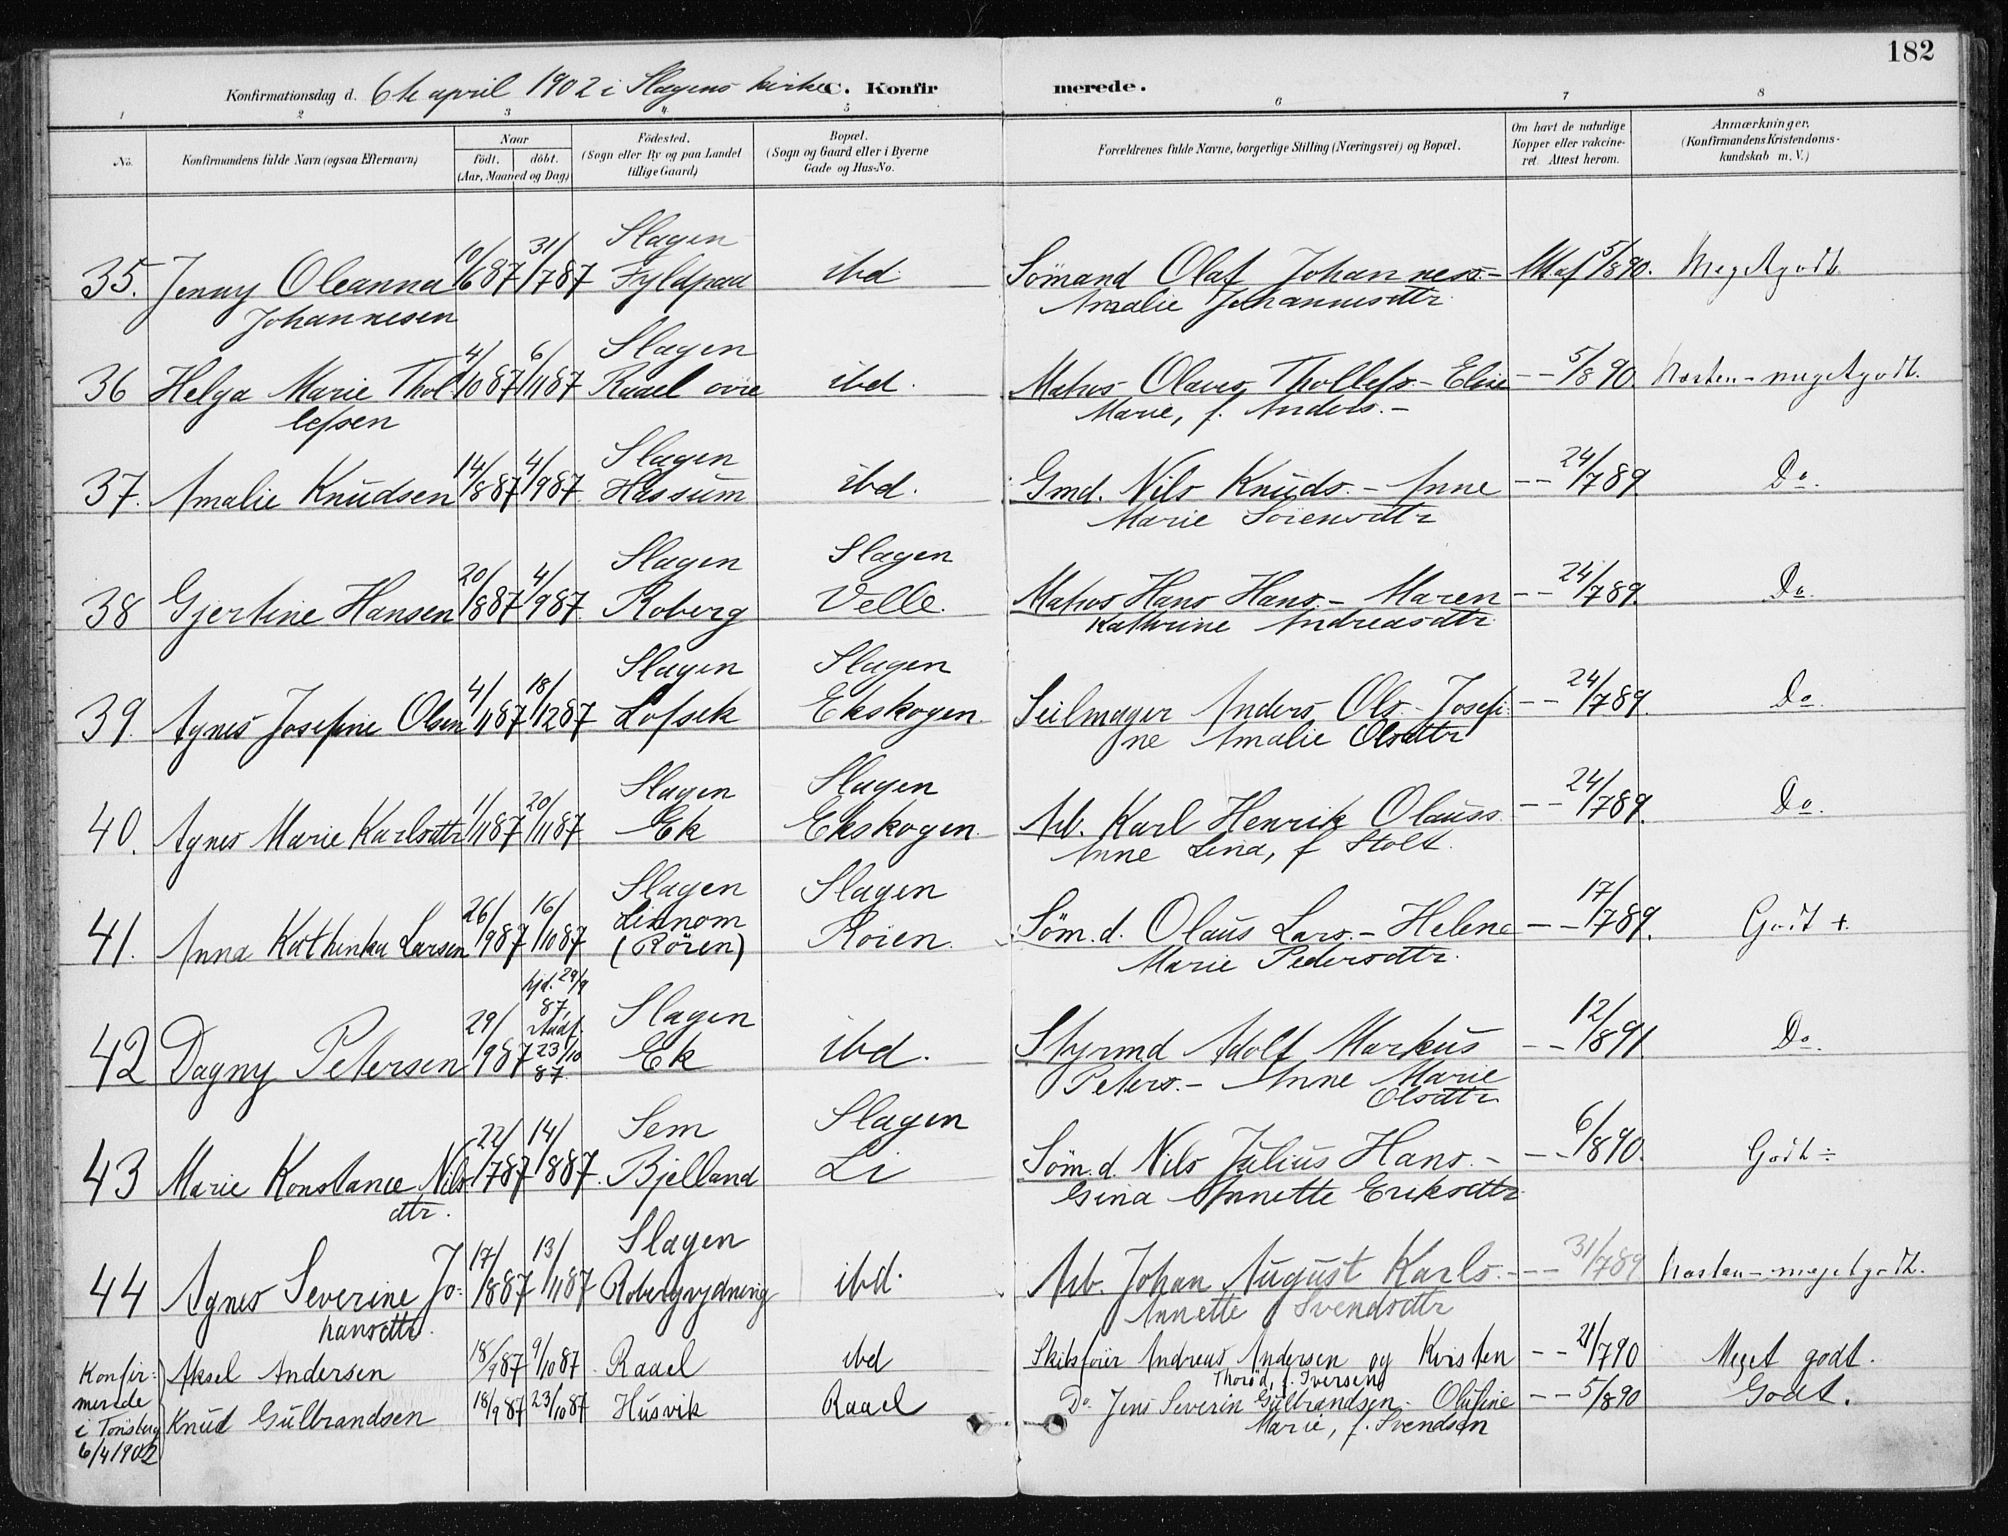 182
Konfirmationsdag d. 6te april 1902 i Slagens kirke C. Konfirmerede.
1 2 3 4 5 6 7 8
No. Konfirmandens fulde Navn (ogsaa Efternavn) Naar födt. döbt. (Aar, Maaned og Dag) Födested. (Sogn eller By og paa Landet tillige Gaard) Bopæl. (Sogn og Gaard eller i Byerne Gade og Hus-No. Forældrenes fulde Navne, borgerlige Stilling (Næringsvei) og Bopæl. Om havt de naturlige Kopper eller vaccineret. Attest herom. Anmærkninger. (Konfirmandens Kristendomskundskab m. V.)
35. Jenny Oleanna 10/6 87 31/7 87 Slagen Fyldpaa ibd. Sömand Olaf Johanness.- 5/8 90. Meget godt
Johannesen Amalie Johannesdtr.
36 Helga Marie Thol 4/10 87 6/11 87 Slagen Raael övre ibd. Matros Olaves Thollefs.- Eline -- 5/8 90 Næsten-meget godt.
lefsen Marie, f. Anders.-
37. Amalie Knudsen 14/8 87 4/9 87. Slagen Hassum ibd. Gmd. Nils Knuds.- Anne -- 24/7 89. Do.
Marie Sörensdtr
38 Gjertine Hansen 20/8 87 4/9 87. Slagen Roberg Slagen Velle. Matros Hans Hans.- Maren -- 24/7 89. Do.
Kathrine Andreasdtr.
39. Agnes Josefine Olsen 4/11 87 18/12 87 Slagen Lofsek Slagen Ekskogen. Seilmager Anders Ols.- Josefi- -- 24/7 89. Do.
ne Amalie Olsdtr
40. Agnes Marie Karlsdtr 1/11 87 20/11 87 Slagen Ek Slagen Ekskogen. Arb. Karl Henrik Olauss. -- 24/7 89. Do.
Anne Lina, f Stolt.
41. Anna Kathinka Larsen 26/9 87 16/10 87. Slagen Linnom (Rören) Slagen Röien. Söm.d. Olaus Lars.- Helene -- 17/7 89. Godt +.
Marie Pedersdtr.
42 Dagny Petersen 29/9 87 hjd. 29/9 87, 23/10 87. Slagen Ek ibd. Styrmd Adolf Markus -- 12/8 91. Do.
Peters.- Anne Marie
Olsdtr.
43 Marie Konstance Nils 22/7 87 14/8 87. Sem Bjelland Slagen Li Söm.d. Nils Julius Hans.- -- 6/8 90. Godt ÷
dtr. Gina Annette Eriksdtr.
44 Agnes Severine Jo- 17/8 87 13/11 87 Slagen Robergrydning ibd. Arb. Johan August Karls.- -- 31/7 89 Næsten-meget godt.
hansdtr. Annette Svendsdtr
Konfir- Aksel Andersen 18/9 87 9/10 87. Raael ibd Skibsförer Andreas Andersen og Kirsten -- 21/7 90 Meget godt.
merede Thorød, f. Iversen
i Tönsberg Knud Gulbrandsen 18/9 87 23/10 87 Husvik Raael Do. Jens Severin Gulbrandsen. Olufine -- 5/8 90 Godt.
6/4 1902 Marie, f. Svendsen